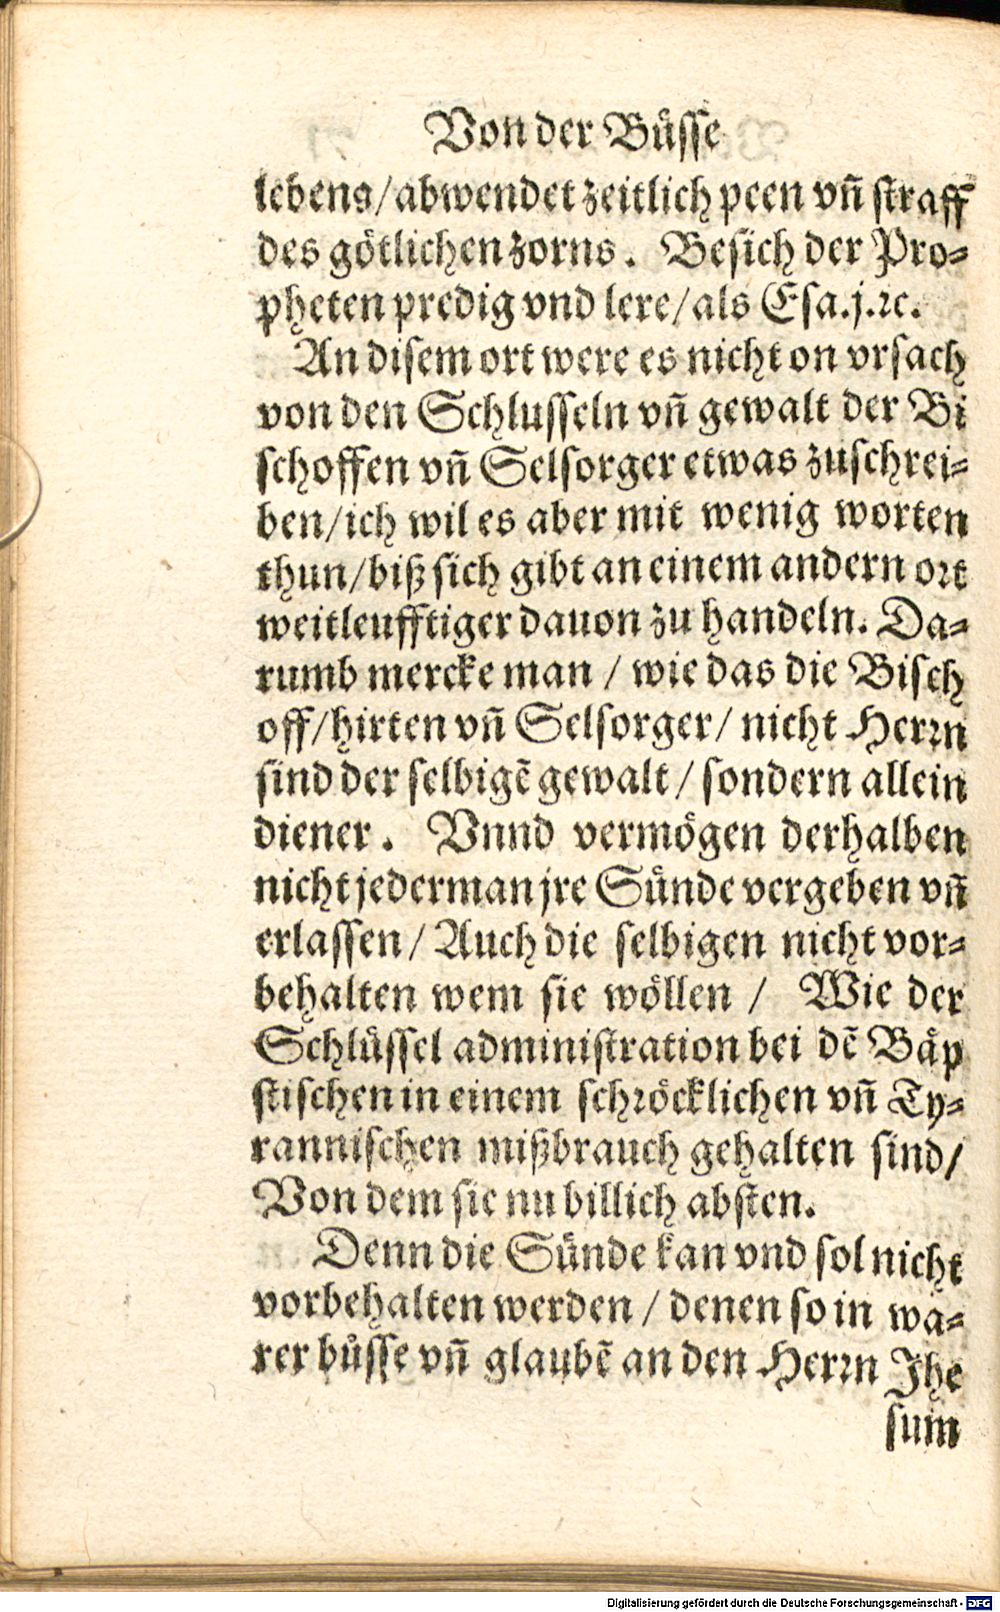 Von der Bůsse
lebens/abwendet zeitlich peen vñ straff
des götlichen zorns. Besich der Pro⸗
pheten predig vnd lere/als Esa.j.ꝛc.
An disem ort were es nicht on vrsach
von den Schlusseln vñ gewalt der Bi
schoffen vñ Selsorger etwas zuschrei⸗
ben/ich wil es aber mit wenig worten
thun/biß sich gibt an einem andern ort
weitleufftiger dauon zu handeln. Da⸗
rumb mercke man / wie das die Bisch
off/hirten vñ Selsorger/ nicht Herrn
sind der selbigẽ gewalt / sondern allein
diener. Vnnd vermögen derhalben
nicht jederman jre Sünde vergeben vñ
erlassen/ Auch die selbigen nicht vor⸗
behalten wem sie wöllen / Wie der
Schlüssel administration bei dẽ Bäp
stischen in einem schröcklichen vñ Ty⸗
rannischen mißbrauch gehalten sind/
Von dem sie nu billich absten.
Denn die Sünde kan vnd sol nicht
vorbehalten werden / denen so in wa⸗
rer bůsse vñ glaubẽ an den Herrn Jhe
sum
Digitalisierung gefördert durch die Deutsche Forschungsgemeinschaft - DFG